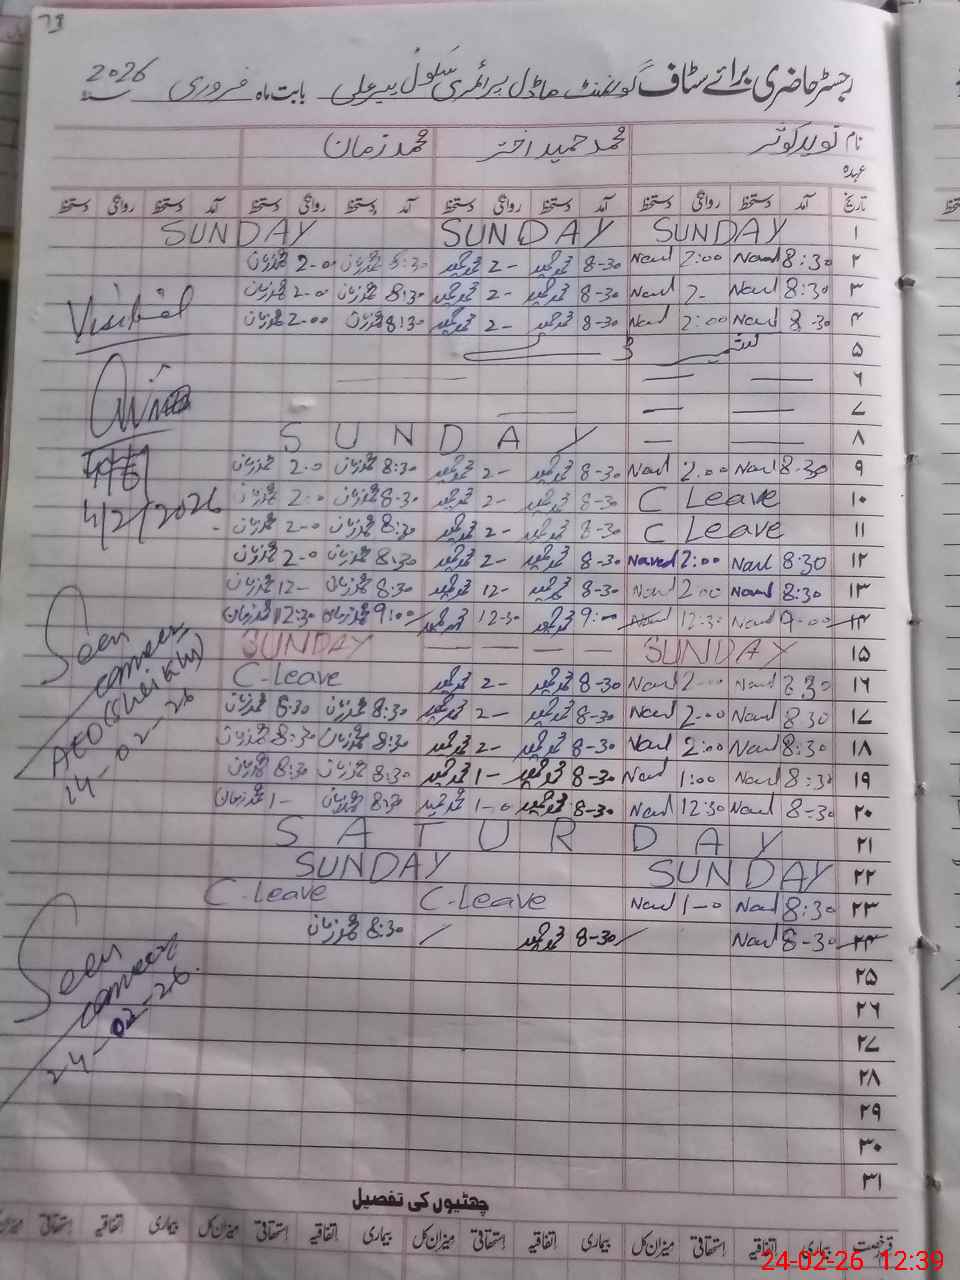 رجسٹر حاضری برائے سٹاف گورنمنٹ ماڈل پرائمری سکول پیر علی بابت ماہ فروری سنہ 2026
نام نوید کوثر محمد حمید اختر محمد زمان
عہدہ
تاریخ آمد دستخط روانگی دستخط آمد دستخط روانگی دستخط آمد دستخط روانگی دستخط آمد دستخط روانگی دستخط
۱ SUNDAY SUNDAY SUNDAY
۲ 8:30 Naved 2:00 Naved 8-30 محمد حمید 2- محمد حمید 8:30 محمد زمان 2-00 محمد زمان
۳ 8:30 Naved 2- Naved 8-30 محمد حمید 2- محمد حمید 8:30 محمد زمان 2-00 محمد زمان
۴ 8-30 Naved 2:00 Naved 8-30 محمد حمید 2- محمد حمید 8:30 محمد زمان 2-00 محمد زمان
Visited
۵ کشمیر ڈے
۶
۷
۸ SUNDAY
۹ 8-30 Naved 2:00 Naved 8-30 محمد حمید 2- محمد حمید 8:30 محمد زمان 2-0 محمد زمان
۱۰ C Leave 8-30 محمد حمید 2- محمد حمید 8-30 محمد زمان 2-0 محمد زمان
4/2/2026
۱۱ C Leave 8-30 محمد حمید 2- محمد حمید 8:30 محمد زمان 2-0 محمد زمان
۱۲ 8:30 Naved 2:00 Naved 8-30 محمد حمید 2- محمد حمید 8:30 محمد زمان 2-0 محمد زمان
۱۳ 8:30 Naved 2:00 Naved 8-30 محمد حمید 12- محمد حمید 8:30 محمد زمان 12- محمد زمان
۱۴ 9-00 Naved 12:30 Naved 9:00 محمد حمید 12-30 محمد حمید 9:00 محمد زمان 12:30 محمد زمان
Seen
۱۵ SUNDAY SUNDAY
۱۶ 8:30 Naved 2-00 Naved 8-30 محمد حمید 2- محمد حمید C-Leave
۱۷ 8:30 Naved 2-00 Naved 8-30 محمد حمید 2- محمد حمید 8:30 محمد زمان 8:30 محمد زمان
۱۸ 8:30 Naved 2:00 Naved 8-30 محمد حمید 2- محمد حمید 8:30 محمد زمان 8:30 محمد زمان
14-02-26
۱۹ 8:30 Naved 1:00 Naved 8-30 محمد حمید 1- محمد حمید 8:30 محمد زمان 8:30 محمد زمان
۲۰ 8-30 Naved 12:30 Naved 8-30 محمد حمید 1-0 محمد حمید 8:30 محمد زمان 1- محمد زمان
۲۱ SATURDAY
۲۲ SUNDAY SUNDAY
۲۳ 8:30 Naved 1-0 Naved C-Leave C-Leave
۲۴ 8-30 Naved 8-30 محمد حمید 8:30 محمد زمان
Seen
۲۵
۲۶
24-02-26
۲۷
۲۸
۲۹
۳۰
۳۱
چھٹیوں کی تفصیل
قسم رخصت بیماری اتفاقیہ استحقاقی میزان کل بیماری اتفاقیہ استحقاقی میزان کل بیماری اتفاقیہ استحقاقی میزان کل بیماری اتفاقیہ استحقاقی میزان
24-02-26 12:39